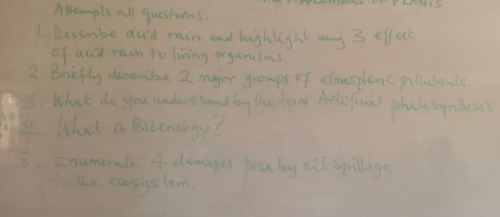 APPLICATIONS OF PLANTS
Attempts all questions.
1. Describe acid rain and highlight any 3 effect
of acid rain to living organisms.
2. Briefly describe 2 major groups of atmospheric pollutants.
3. What do you understand by the term Artificial photosynthesis
4. What is Bioenergy?
5. Enumerate 4 damages pose by oil spillage
to the ecosystem.